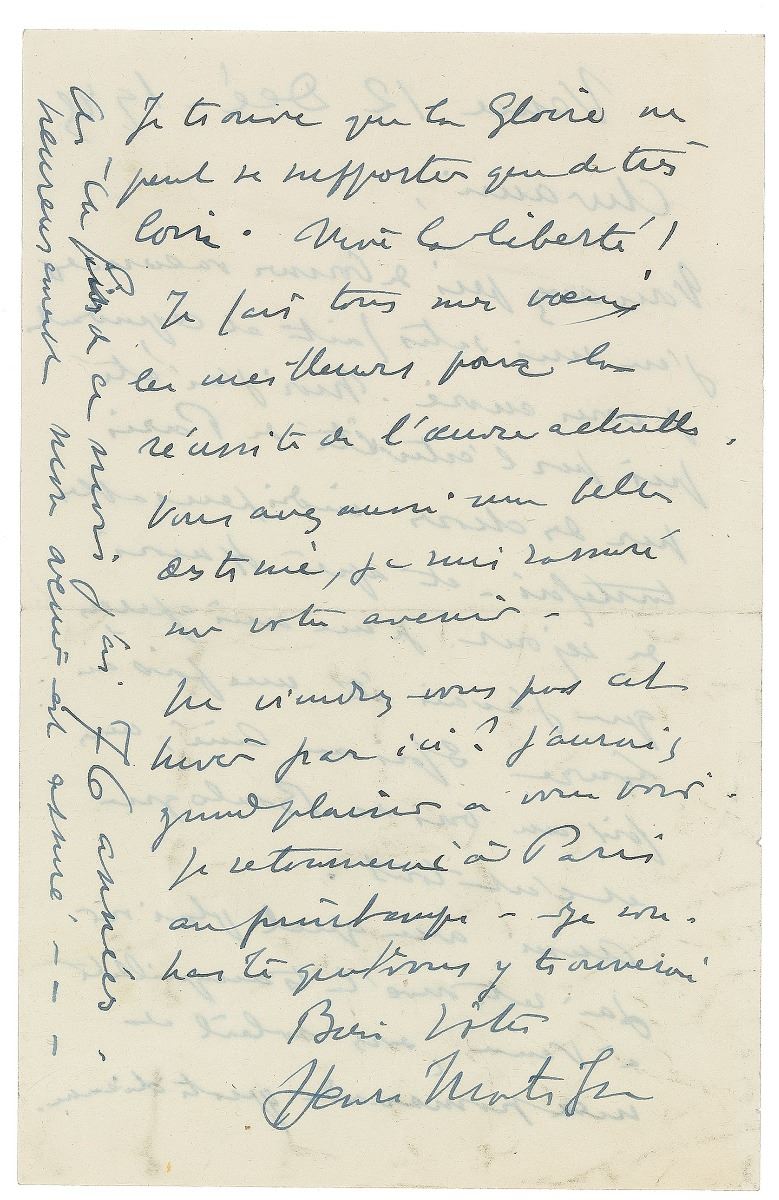 Je trouve que la Gloire ne
peut se supporter que de très
loin. Vive la liberté !
Je fais tous mes vœux
les meilleurs pour la
réussite de l'œuvre actuelle.
Vous avez aussi une belle
destinée, je suis rassuré
sur votre avenir -
Ne viendrez-vous pas cet
hiver par ici ? J'aurais
grand plaisir à vous voir.
Je retournerai à Paris
au printemps - Je sou-
haite que vous y trouverai
Bien Vôtre
Henri Matisse
de ce mois j'ai 76 années.
heureusement mon avenir est assuré - - -